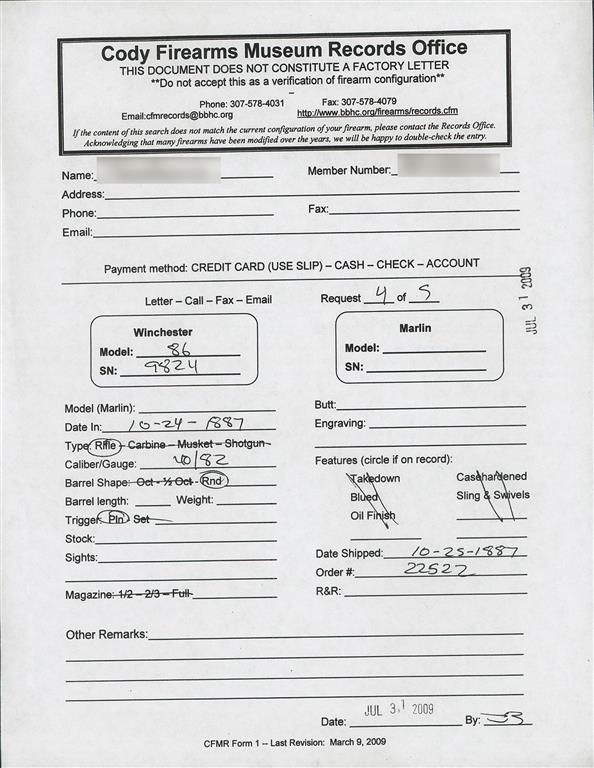 Cody Firearms Museum Records Office
THIS DOCUMENT DOES NOT CONSTITUTE A FACTORY LETTER
**Do not accept this as a verification of firearm configuration**
Phone: 307-578-4031 Fax: 307-578-4079
Email:cfmrecords@bbhc.org http://www.bbhc.org/firearms/records.cfm
If the content of this search does not match the current configuration of your firearm, please contact the Records Office.
Acknowledging that many firearms have been modified over the years, we will be happy to double-check the entry.
Name: Member Number:
Address:
Phone: Fax:
Email:
Payment method: CREDIT CARD (USE SLIP) – CASH – CHECK – ACCOUNT
JUL 31 2009
Letter – Call – Fax – Email Request 4 of 5
Winchester
Model: 86
SN: 9824
Marlin
Model:
SN:
Model (Marlin):
Date In: 10-24-1887
Type: Rifle – Carbine – Musket – Shotgun
Caliber/Gauge: 40/82
Barrel Shape: Oct - ½ Oct - Rnd
Barrel length: Weight:
Trigger: Pln Set
Stock:
Sights:
Magazine: 1/2 – 2/3 – Full
Butt:
Engraving:
Features (circle if on record):
Takedown Casehardened
Blued Sling & Swivels
Oil Finish
Date Shipped: 10-25-1887
Order #: 22527
R&R:
Other Remarks:
Date: JUL 31 2009 By: JB
CFMR Form 1 -- Last Revision: March 9, 2009